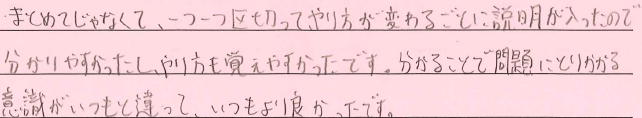 まとめてじゃなくて、一つ一つ区切ってやり方が変わるごとに説明が入ったので
分かりやすかったし、やり方も覚えやすかったです。分かることで問題にとりかかる
意識がいつもと違って、いつもより良かったです。